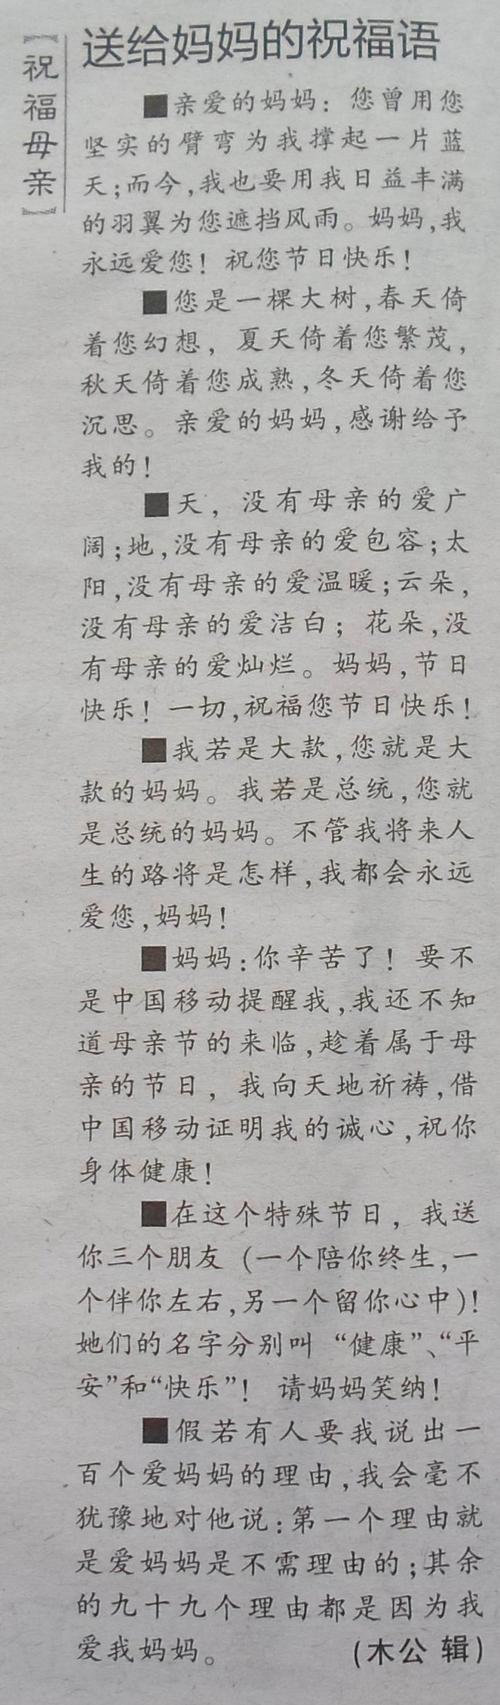 【祝福母亲】
送给妈妈的祝福语
■亲爱的妈妈：您曾用您
坚实的臂弯为我撑起一片蓝
天；而今，我也要用我日益丰满
的羽翼为您遮挡风雨。妈妈，我
永远爱您！祝您节日快乐！
■您是一棵大树，春天倚
着您幻想，夏天倚着您繁茂，
秋天倚着您成熟，冬天倚着您
沉思。亲爱的妈妈，感谢给予
我的！
■天，没有母亲的爱广
阔；地，没有母亲的爱包容；太
阳，没有母亲的爱温暖；云朵，
没有母亲的爱洁白；花朵，没
有母亲的爱灿烂。妈妈，节日
快乐！一切，祝福您节日快乐！
■我若是大款，您就是大
款的妈妈。我若是总统，您就
是总统的妈妈。不管我将来人
生的路将是怎样，我都会永远
爱您，妈妈！
■妈妈：你辛苦了！要不
是中国移动提醒我，我还不知
道母亲节的来临，趁着属于母
亲的节日，我向天地祈祷，借
中国移动证明我的诚心，祝你
身体健康！
■在这个特殊节日，我送
你三个朋友（一个陪你终生，一
个伴你左右，另一个留你心中）！
她们的名字分别叫“健康”、“平
安”和“快乐”！请妈妈笑纳！
■假若有人要我说出一
百个爱妈妈的理由，我会毫不
犹豫地对他说：第一个理由就
是爱妈妈是不需理由的；其余
的九十九个理由都是因为我
爱我妈妈。（木公 辑）